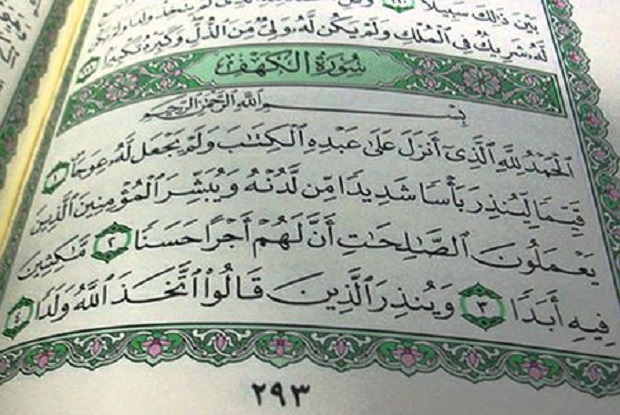 بَيْنَ ذَٰلِكَ سَبِيلًا ١١٠
لَّهُۥ شَرِيكٌ فِي ٱلْمُلْكِ وَلَمْ يَكُن لَّهُۥ وَلِيٌّ مِّنَ ٱلذُّلِّ وَكَبِّرْهُ تَكْبِيرًا ١١١
سُورَةُ الكَهْفِ
بِسْمِ ٱللَّهِ ٱلرَّحْمَٰنِ ٱلرَّحِيمِ
ٱلْحَمْدُ لِلَّهِ ٱلَّذِىٓ أَنزَلَ عَلَىٰ عَبْدِهِ ٱلْكِتَٰبَ وَلَمْ يَجْعَل لَّهُۥ عِوَجَا ١
قَيِّمًا لِّيُنذِرَ بَأْسًا شَدِيدًا مِّن لَّدُنْهُ وَيُبَشِّرَ ٱلْمُؤْمِنِينَ ٱلَّذِينَ
يَعْمَلُونَ ٱلصَّٰلِحَٰتِ أَنَّ لَهُمْ أَجْرًا حَسَنًا ٢ مَّٰكِثِينَ
فِيهِ أَبَدًا ٣ وَيُنذِرَ ٱلَّذِينَ قَالُوا۟ ٱتَّخَذَ ٱللَّهُ وَلَدًا ٤
٢٩٣